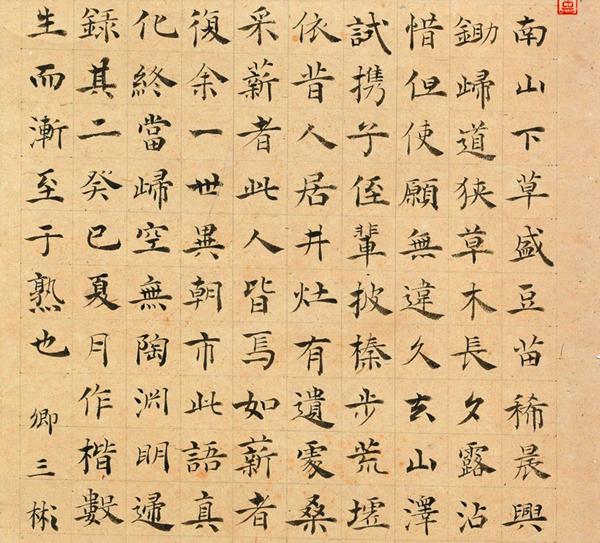 南山下草盛豆苗稀晨興
鋤歸道狹草木長夕露沾
惜但使願無違久去山澤
試携子侄輩披榛步荒墟
依昔人居井灶有遺處桑
采薪者此人皆焉如薪者
復余一世異朝市此語真
化終當歸空無陶渊明歸
録其二癸巳夏月作楷數
生而漸至于熟也 卿三彬